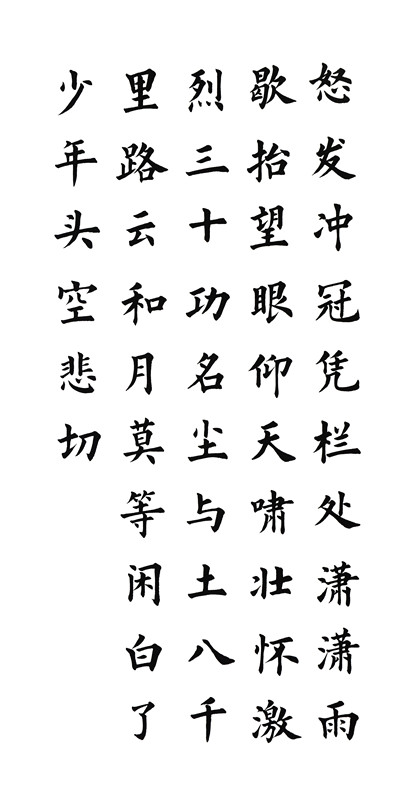 怒发冲冠凭栏处潇潇雨
歇抬望眼仰天啸壮怀激
烈三十功名尘与土八千
里路云和月莫等闲白了
少年头空悲切